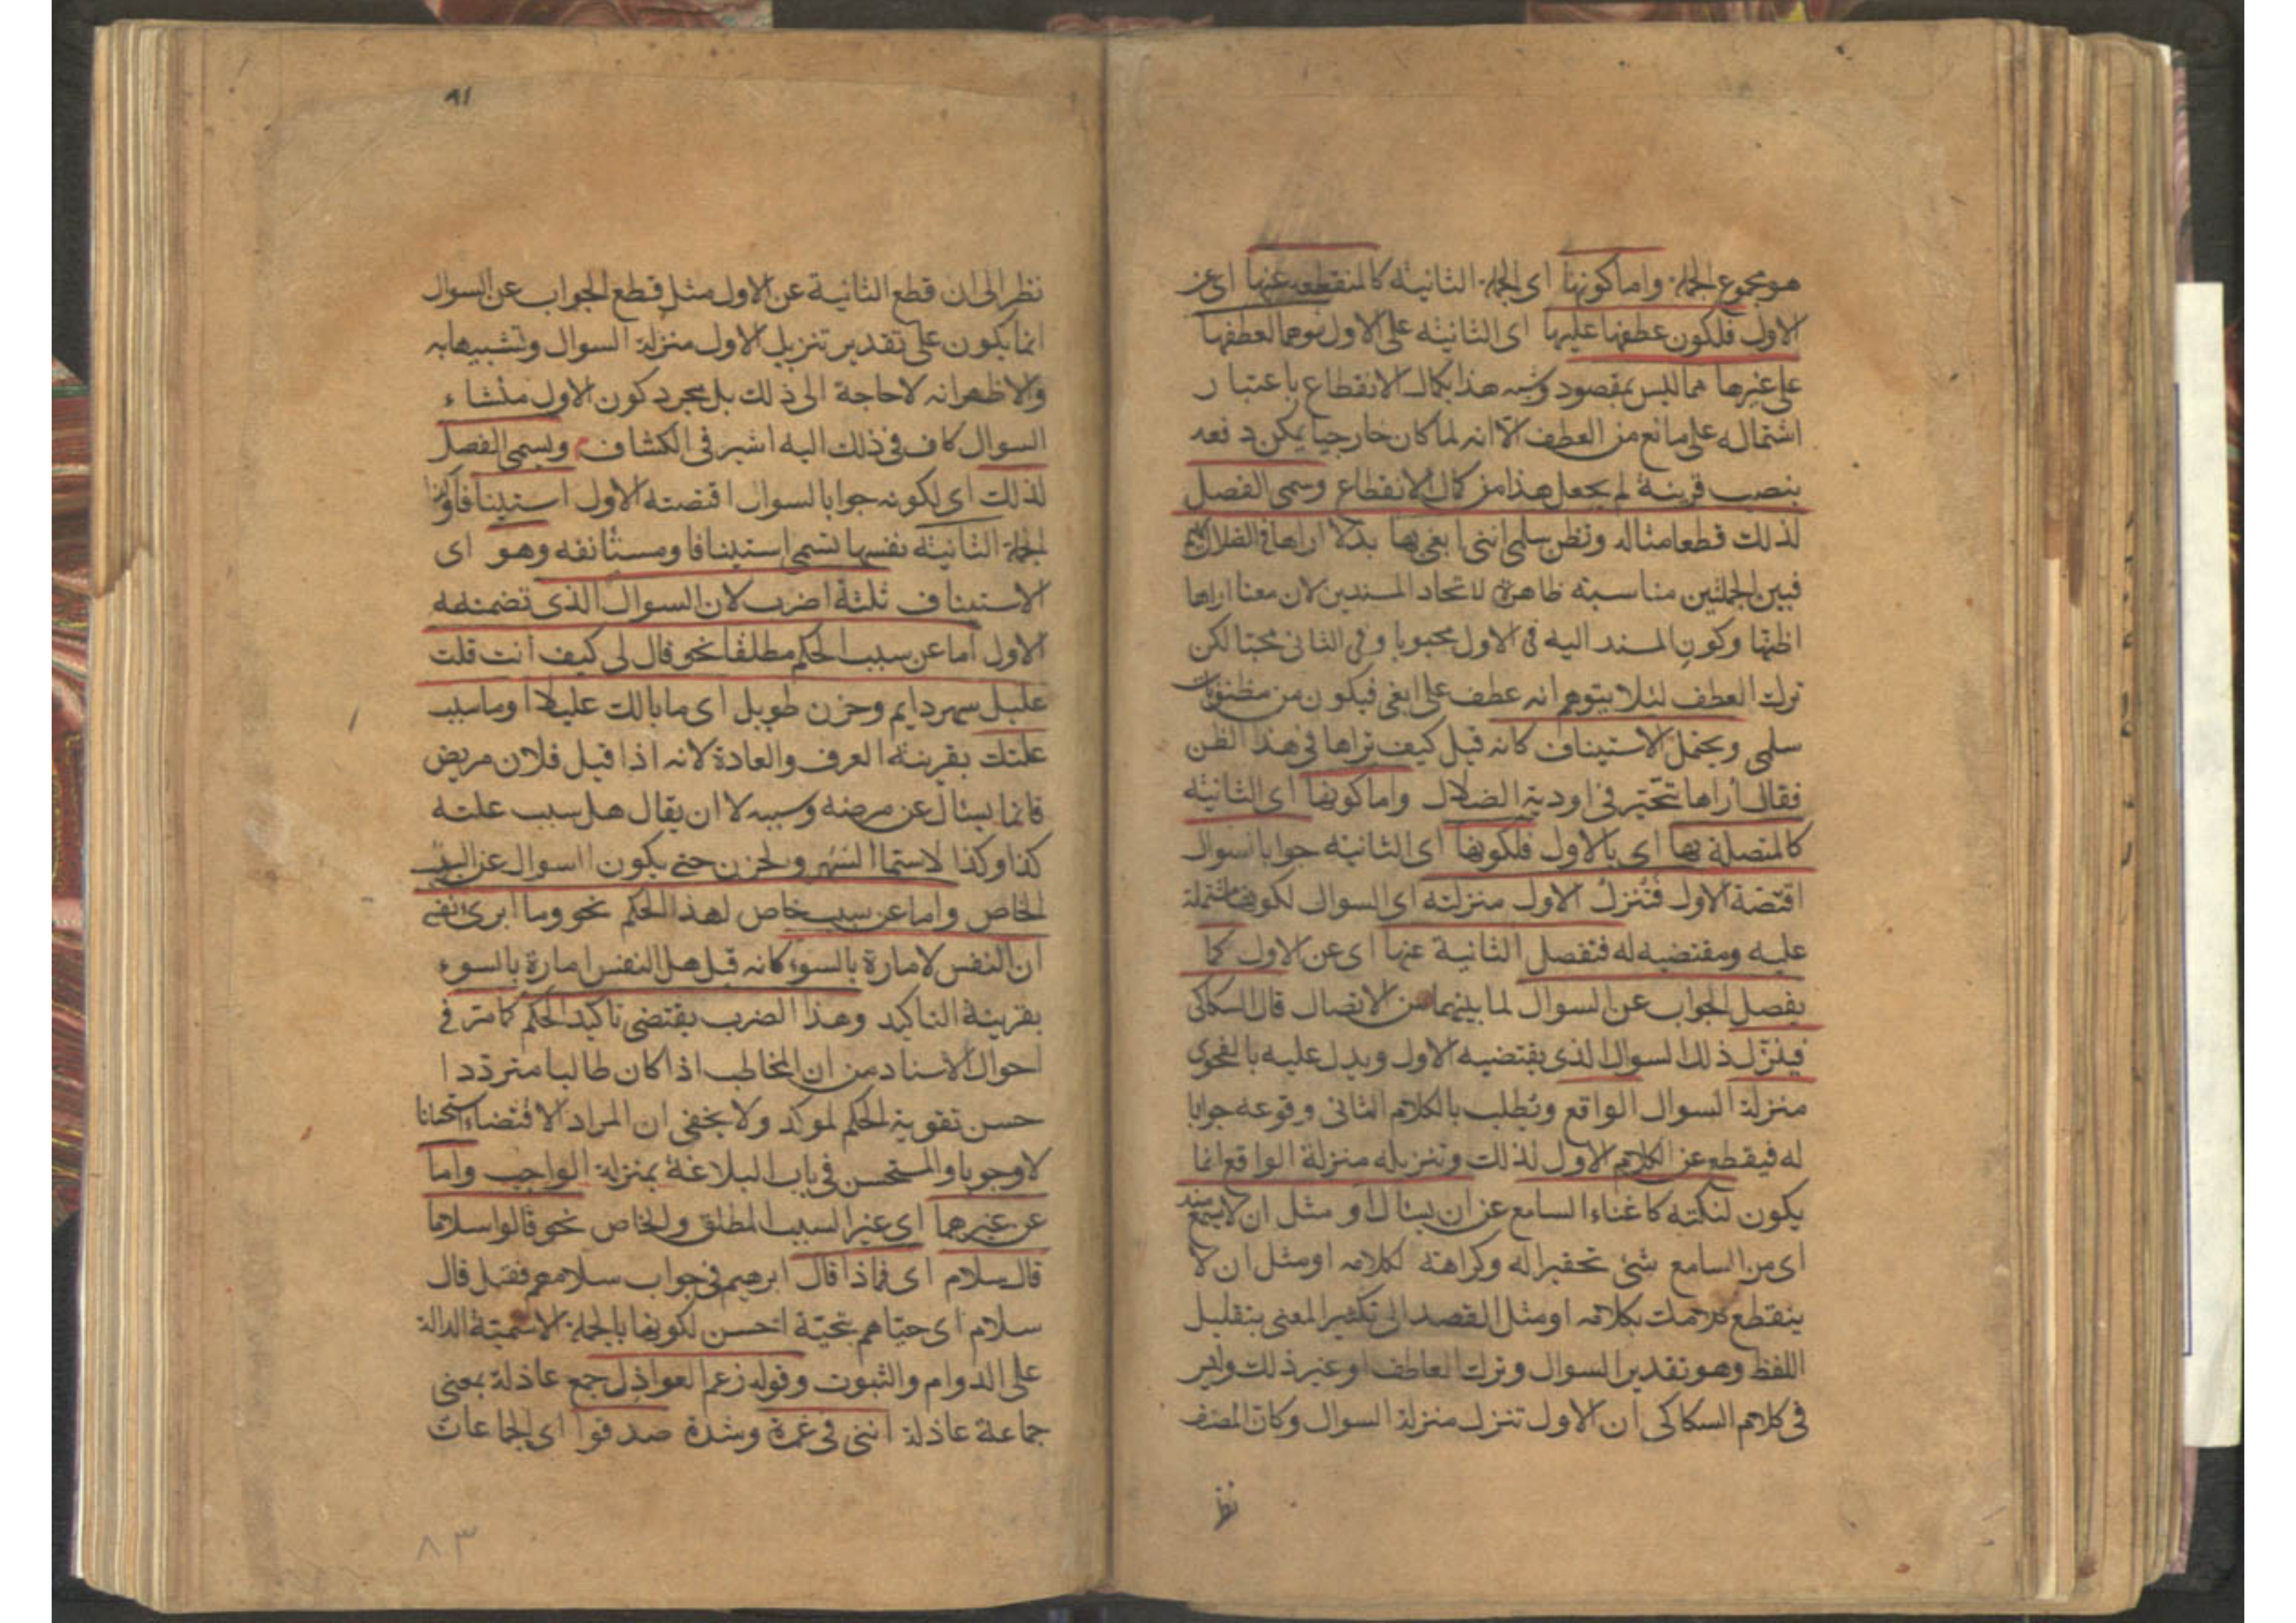 هو مجموع الجملة واما كونها اى الجملة الثانية كالمنقطعه عنها اى عن
الاولى فلكون عطفها عليها اى الثانيه على الاولى موهما لعطفها
على غيرها مما ليس بمقصود وشبه هذا بكمال الانقطاع باعتبار
اشتماله على مانع من العطف الا انه لما كان خارجيا يمكن دفعه
بنصب قرينة لم يجعل هذا من كمال الانقطاع وسمى الفصل
لذلك قطعا مثاله وتظن سلمى اننى ابغى بها بدلا اراها فى الضلال تهيم
فبين الجملتين مناسبة ظاهرة لاتحاد المسندين لان معنى اراها
اظنها وكون المسند اليه فى الاول محبوبا وفى الثانى محبا لكن
ترك العطف لئلا يتوهم انه عطف على ابغى فيكون من مظنونات
سلمى ويحتمل الاستيناف كانه قيل كيف تراها فى هذا الظن
فقال أراها تتحير فى اودية الضلال واما كونها اى الثانيه
كالمتصلة بها اى بالاول فلكونها اى الثانيه جوابا لسوال
اقتضة الاول فتنزل الاول منزلته اى السوال لكونها مشتملة
عليه ومقتضيه له فتفصل الثانية عنها اى عن الاول كما
يفصل الجواب عن السوال لما بينهما من الاتصال قال السكاكى
فينزل ذلك السوال الذى يقتضيه الاول ويدل عليه بالفحوى
منزلة السوال الواقع ويطلب بالكلام الثانى وقوعه جوابا
له فيقطع عن الكلام الاول لذلك وتنزيله منزلة الواقع انما
يكون لنكتة كاغناء السامع عن ان يسئال او مثل ان لا يسمع منه
اى من السامع شئ تحقيرا له وكراهة لكلامه او مثل ان لا
ينقطع كلامك بكلامه او مثل القصد الى تكثير المعنى بتقليل
اللفظ وهو تقدير السوال وترك العاطف او غير ذلك وليس
فى كلام السكاكى ان الاول تنزل منزلة السوال وكان المصنف
نظر
٨١
نظر الى ان قطع الثانية عن الاول مثل قطع الجواب عن السوال
انما يكون على تقدير تنزيل الاول منزلة السوال وتشبيهها به
والاظهر انه لا حاجة الى ذلك بل مجرد كون الاول منشاء
السوال كاف فى ذلك اليه اشير فى الكشاف ويسمى الفصل
لذلك اى لكونه جوابا لسوال اقتضته الاول استينافا وكذا
الجملة الثانية نفسها تسمى استينافا ومستأنفه وهو اى
الاستيناف ثلثة اضرب لان السوال الذى تضمنته
الاول أما عن سبب الحكم مطلقا نحو قال لى كيف أنت قلت
عليل سهر دايم وحزن طويل اى ما بالك عليلا او ما سبب
علتك بقرينة العرف والعادة لانه اذا قيل فلان مريض
فانما يسئال عن مرضه وسببه لا ان يقال هل سبب علته
كذا وكذا لاسيما السهر والحزن حتى يكون السوال عن السبب
الخاص واما عن سبب خاص لهذا الحكم نحو وما ابرئ نفسى
ان النفس لامارة بالسوء كانه قيل هل النفس امارة بالسوء
بقرينة التاكيد وهذا الضرب يقتضى تاكيد الحكم كما مر فى
احوال الاسناد من ان المخاطب اذا كان طالبا مترددا
حسن تقوية الحكم لموكد ولا يخفى ان المراد الاقتضاء استحسانا
لا وجوبا والمستحسن فى باب البلاغة بمنزلة الواجب واما
عن غيرهما اى غير السبب المطلق والخاص نحو قالوا سلاما
قال سلام اى فماذا قال ابرهيم فى جواب سلامهم فقيل قال
سلام اى حياهم بتحية احسن لكونها بالجملة الاسمية الدالة
على الدوام والثبوت وقوله زعم العواذل جمع عاذلة بمعنى
جماعة عاذلة اننى فى غمرة وشدة صدقوا اى الجماعات
٨٣